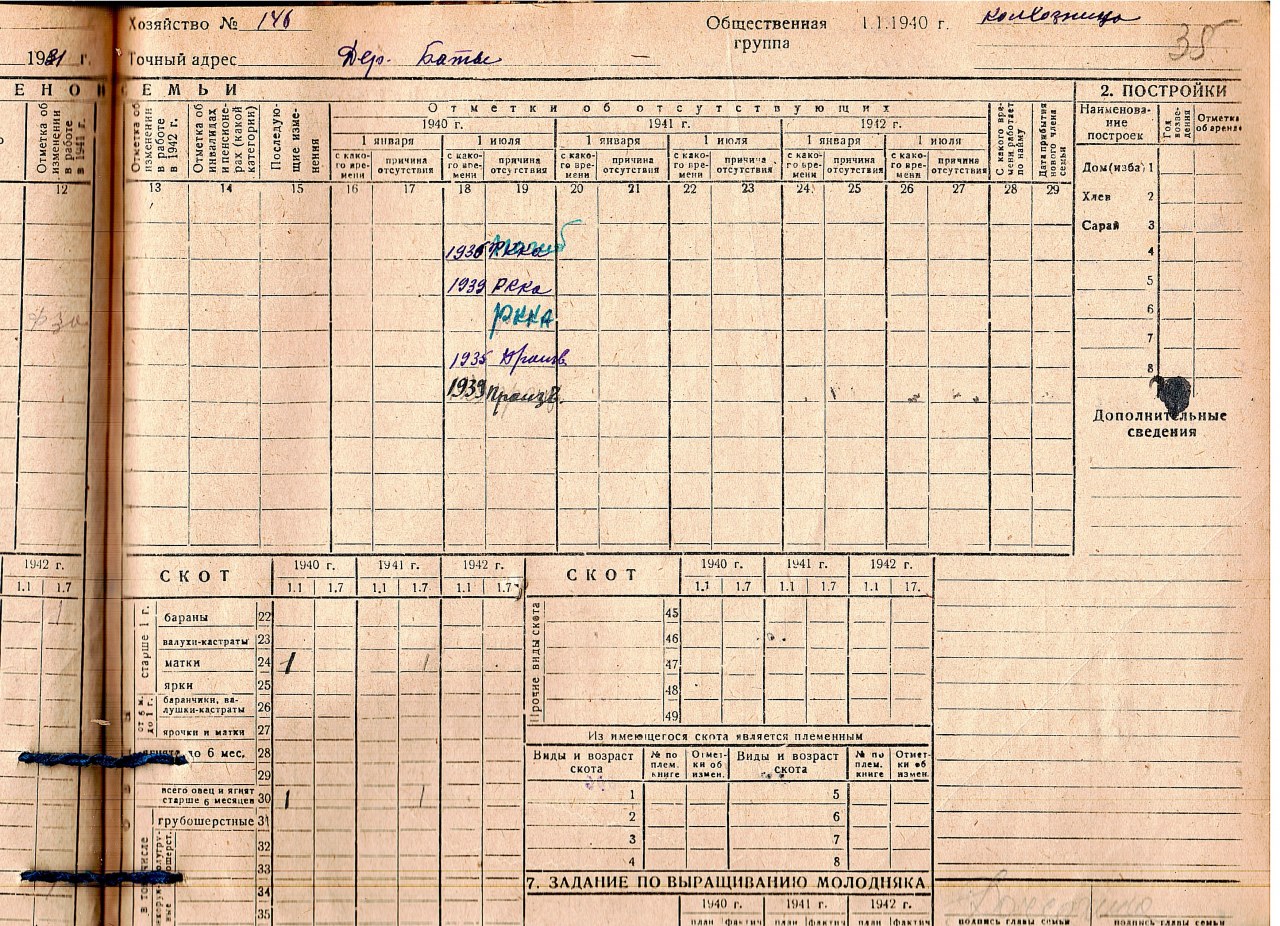 Хозяйство № 146
Общественная группа 1.1.1940 г. колхозница
35
1931 г. Точный адрес Дер. Баты —
ЕНОЙ СЕМЬИ
Отметка об изменении в работе в 1941 г.
12
Отметка об изменении в работе в 1942 г.
13
Отметка об инвалидах и пенсионерах (какой категории)
14
Последующие изменения
15
Отметки об отсутствующих
1940 г. 1941 г. 1942 г.
1 января 1 июля 1 января 1 июля 1 января 1 июля
с какого времени причина отсутствия с какого времени причина отсутствия с какого времени причина отсутствия с какого времени причина отсутствия с какого времени причина отсутствия с какого времени причина отсутствия
16 17 18 19 20 21 22 23 24 25 26 27
С какого времени работает по найму
28
Дата прибытия нового члена семьи
29
1936 РККА
1939 РККА
фзо
РККА
1935 Произв
1939 Произв.
2. ПОСТРОЙКИ
Наименование построек
Год возведения
Отметка об аренде
Дом (изба) 1
Хлев 2
Сарай 3
4
5
6
7
8
Дополнительные сведения
1942 г.
1.1 1.7
1
СКОТ 1940 г. 1941 г. 1942 г.
1.1 1.7 1.1 1.7 1.1 1.7
старше 1 г.
бараны 22
валухи-кастраты 23
матки 24 1 1
ярки 25
от 6 м. до 1 г.
баранчики, валушки-кастраты 26
ярочки и матки 27
ягнята до 6 мес. 28
29
всего овец и ягнят старше 6 месяцев 30 1 1
в том числе
грубошерстные 31
32
33
34
35
СКОТ 1940 г. 1941 г. 1942 г.
1.1 1.7 1.1 1.7 1.1 17.
Прочие виды скота
45
46
47
48
49
Из имеющегося скота является племенным
Виды и возраст скота № по плем. книге Отметки об измен. Виды и возраст скота № по плем. книге Отметки об измен.
1 5
2 6
3 7
4 8
7. ЗАДАНИЕ ПО ВЫРАЩИВАНИЮ МОЛОДНЯКА
1940 г. 1941 г. 1942 г.
план фактич план фактич план фактич
подпись главы семьи подпись главы семьи